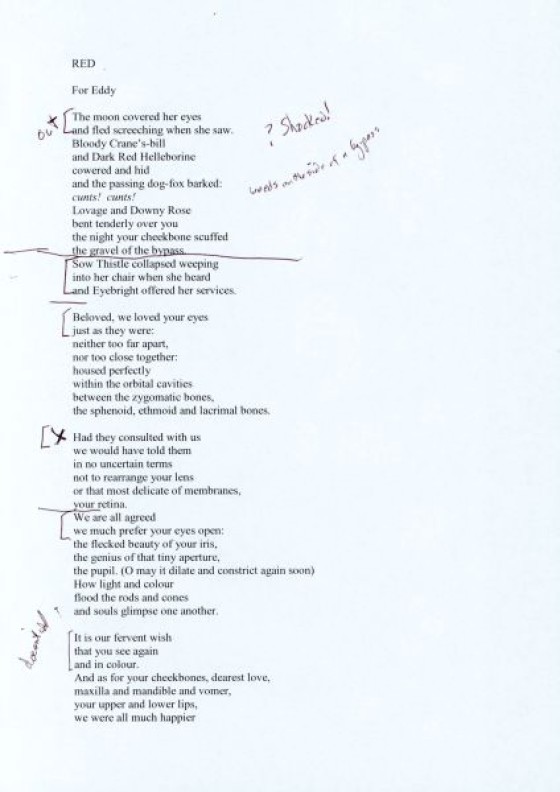 RED
For Eddy
The moon covered her eyes
and fled screeching when she saw.
Bloody Crane's-bill
and Dark Red Helleborine
cowered and hid
and the passing dog-fox barked:
cunts! cunts!
Lovage and Downy Rose
bent tenderly over you
the night your cheekbone scuffed
the gravel of the bypass.
Sow Thistle collapsed weeping
into her chair when she heard
and Eyebright offered her services.
Beloved, we loved your eyes
just as they were:
neither too far apart,
nor too close together:
housed perfectly
within the orbital cavities
between the zygomatic bones,
the sphenoid, ethmoid and lacrimal bones.
Had they consulted with us
we would have told them
in no uncertain terms
not to rearrange your lens
or that most delicate of membranes,
your retina.
We are all agreed
we much prefer your eyes open:
the flecked beauty of your iris,
the genius of that tiny aperture,
the pupil. (O may it dilate and constrict again soon)
How light and colour
flood the rods and cones
and souls glimpse one another.
It is our fervent wish
that you see again
and in colour.
And as for your cheekbones, dearest love,
maxilla and mandible and vomer,
your upper and lower lips,
we were all much happier
out
? Shocked!
weeds on the side of a bypass